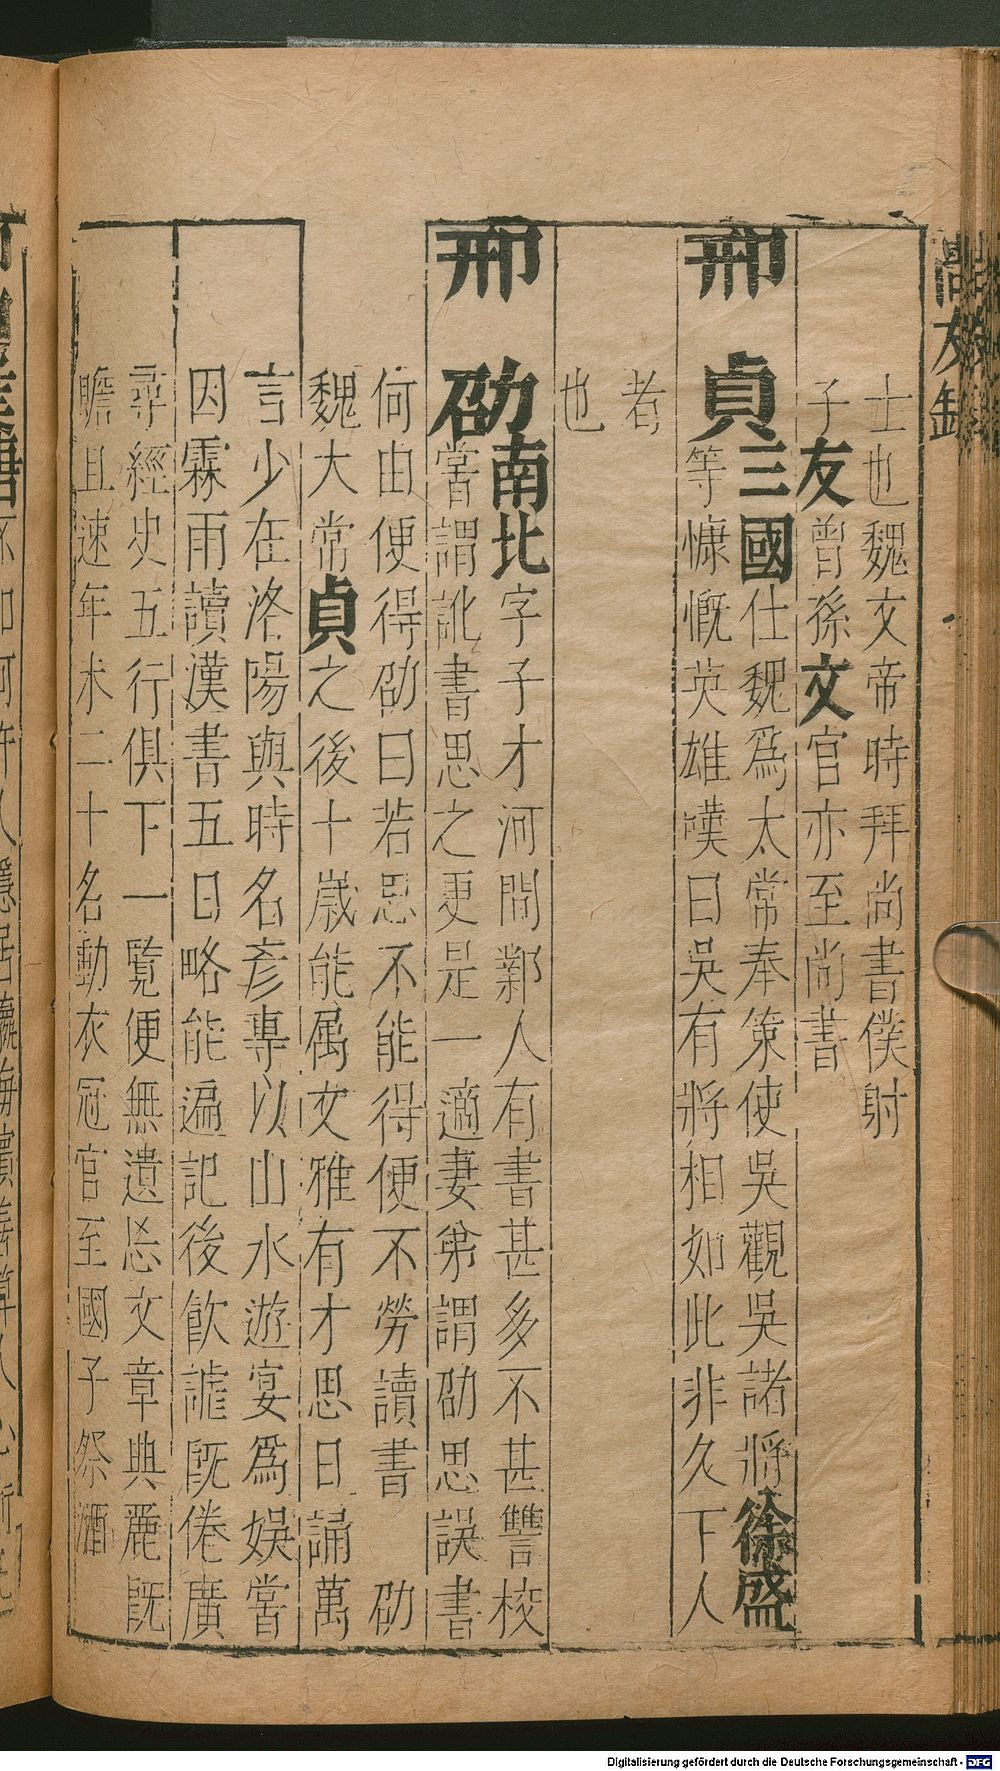 士也魏文帝時拜尚書僕射
子友曾孫文官亦至尚書
邢貞三國仕魏爲太常奉策使吳觀吳諸將徐盛
等慷慨英雄嘆曰吳有將相如此非久下人
者
也
邢劭南北字子才河間鄚人有書甚多不甚讐校
嘗謂訛書思之更是一適妻弟謂劭思誤書
何由便得劭曰若思不能得便不勞讀書 劭
魏大常貞之後十歲能属文雅有才思日誦萬
言少在洛陽與時名彥專以山水遊宴爲娛嘗
因霖雨讀漢書五日略能遍記後飲謔既倦廣
尋經史五行俱下一覽便無遺忘文章典麗既
贍且速年未二十名動衣冠官至國子祭酒
尚友錄
Digitalisierung gefördert durch die Deutsche Forschungsgemeinschaft - DFG